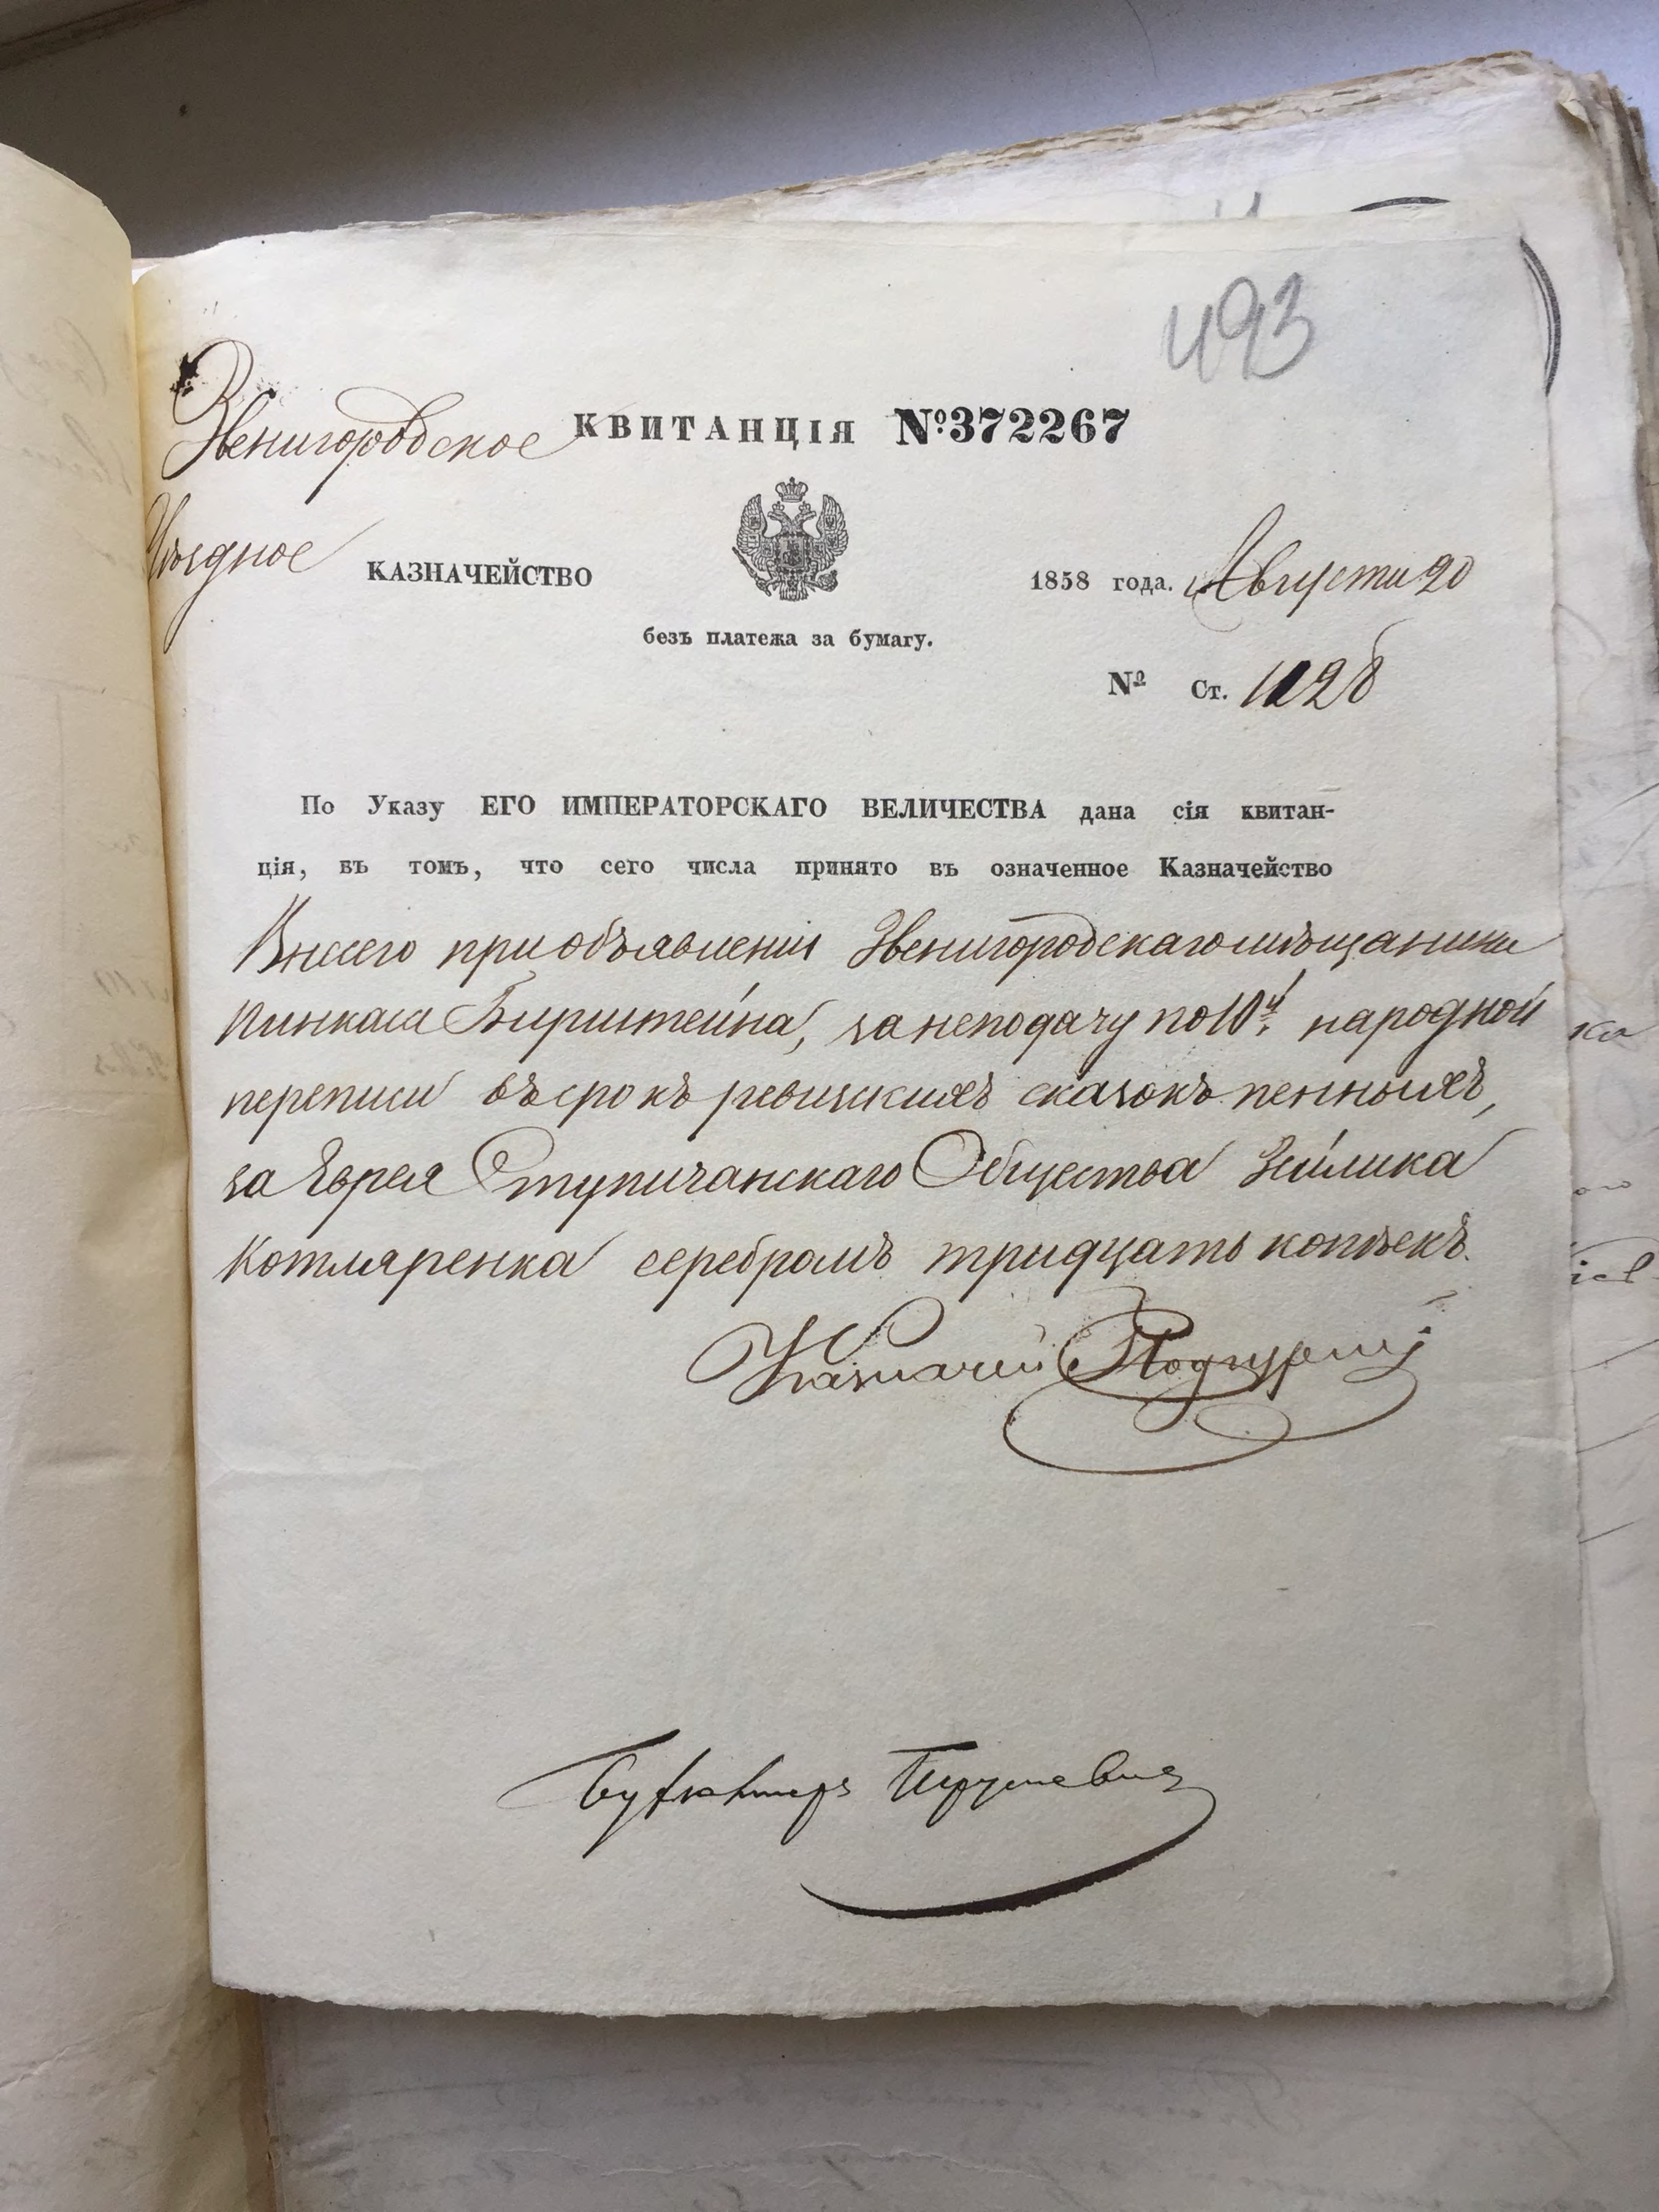 493
Звенигородское КВИТАНЦІЯ №372267
Уѣздное КАЗНАЧЕЙСТВО 1858 года. Августа 20
безъ платежа за бумагу.
№ Ст. 1128
По Указу ЕГО ИМПЕРАТОРСКАГО ВЕЛИЧЕСТВА дана сія квитан-
ція, въ томъ, что сего числа принято въ означенное Казначейство
при объявленіи Звенигородскаго мѣщанина
Пинкаса Бирштейна, за неподачу по 10й народной
переписи въ срокъ ревизскихъ сказокъ пенныхъ,
за Еврея Ступичанскаго Общества Зейлика
Котляренка серебромъ тридцать копѣекъ.
Казначей
Бухгалтеръ